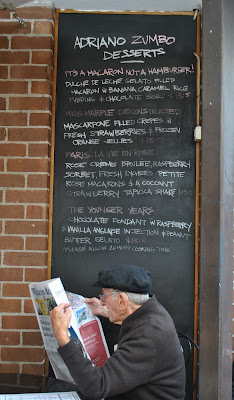 ADRIANO ZUMBO
DESSERTS
IT'S A MACARON NOT A HAMBURGER!
DULCHE DE LECHE GELATO FILLED
MACARON W BANANA CARAMEL RICE
PUDDING & CHOCOLATE
MISS MARPLE DECONSTRUCTED
MASCARPONE FILLED CREPES W
FRESH STRAWBERRIES & FROZEN
ORANGE JELLIES
PARIS: LA VIE EN ROSE
ROSE CREME BRULEE, RASPBERRY
SORBET, FRESH LYCHEES PETITE
ROSE MACARONS & A COCONUT
STRAWBERRY TAPIOCA SHARD
THE YOUNGER YEARS
CHOCOLATE FONDANT W RASPBERRY
& VANILLA ANGLAISE INJECTION & PEANUT
BUTTER GELATO
PLEASE ALLOW 20MINS COOKING TIME